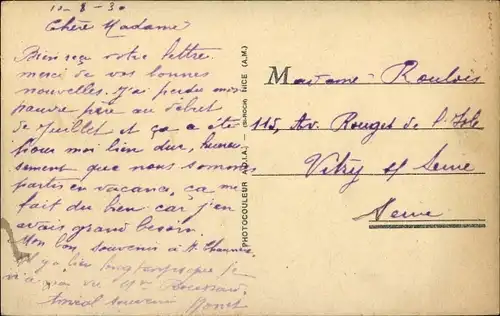 10-8-30
Chère Madame
Bien reçu votre lettre
merci de vos bonnes
nouvelles. J'ai perdu mon
pauvre père au début
de Juillet et ça a été
pour moi bien dur, heureu
sement que nous sommes
partis en vacance, ça me
fait du bien car j'en
avais grand besoin.
Mon bon souvenir à M.
il y a bien longtemps que je
n'ai pas vu Mr
Amical souvenir
PHOTOCOULEUR (D.I.A.) - (St-ROCH) NICE (A.M.)
Madame Roulois
115, Av. Rouget de l'Isle
Vitry s/ Seine
Seine